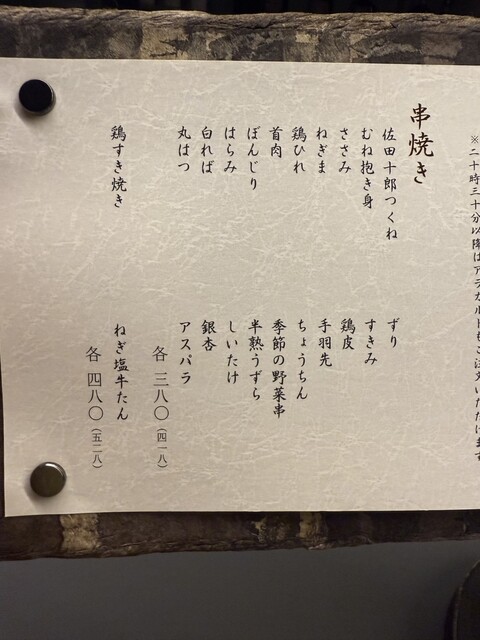 ※二十時三十分以降はアラカルトもご注文いただけます
串焼き
佐田十郎つくね
むね抱き身
ささみ
ねぎま
鶏ひれ
首肉
ぼんじり
はらみ
白ればー
丸はつ
ずり
すきみ
鶏皮
手羽先
ちょうちん
季節の野菜串
半熟うずら
しいたけ
銀杏
アスパラ
各 三八〇(四一八)
鶏すき焼き
ねぎ塩牛たん
各 四八〇(五二八)